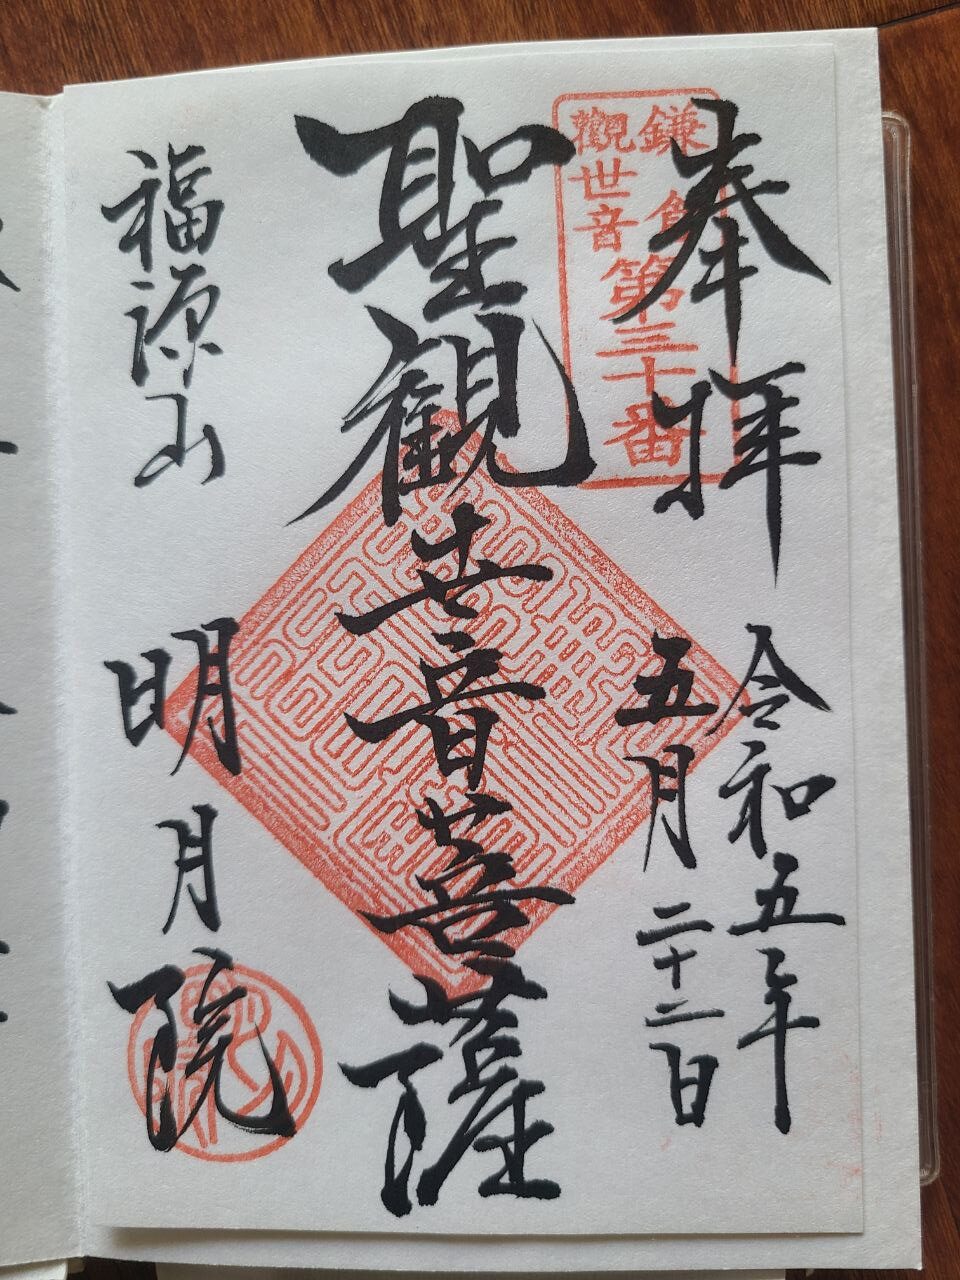 奉拜
令和五年
五月二十二日
鎌倉
觀世音
第三十番
聖観世音菩薩
福源山
明月院